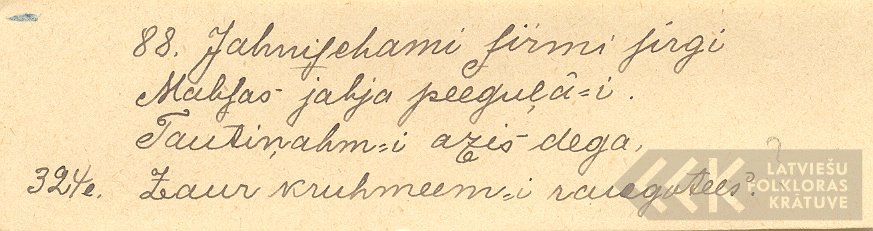 88. Jahniſchami ſirmi ſirgi
Mahſas jahja peeguļâ=i.
Tautiņahm=i azis dega,
324e. Zaur kruhmeem=i raugotees.
?
LATVIEŠU
FOLKLORAS
KRĀTUVE